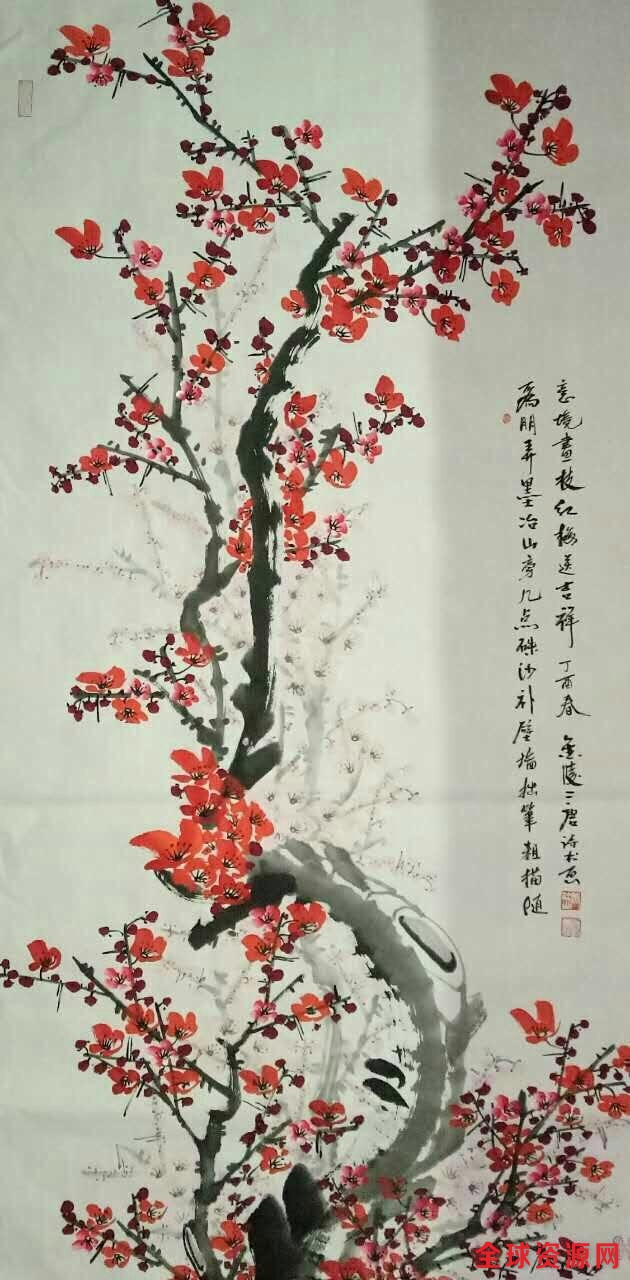 為朋弄墨冶山旁几点硃沙补壁墙拙筆粗描随
意境畫枝红梅送吉祥 丁酉春 金陵三
全球资源网